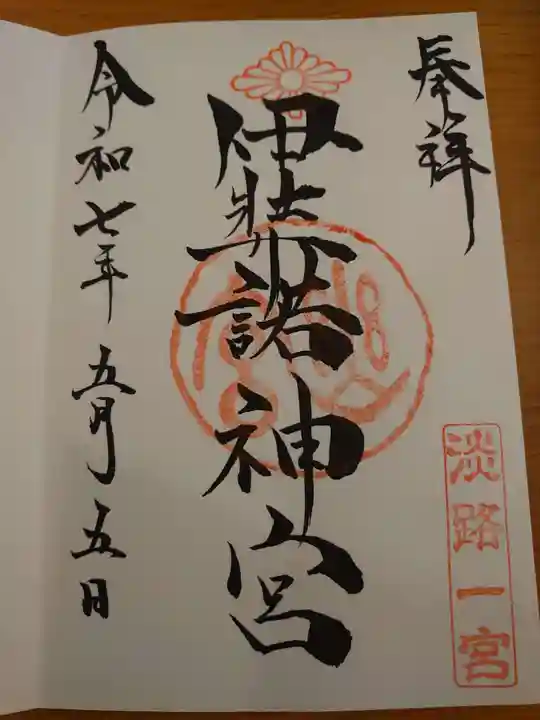 奉拝
伊弉諾神宮
淡路一宮
令和七年五月五日